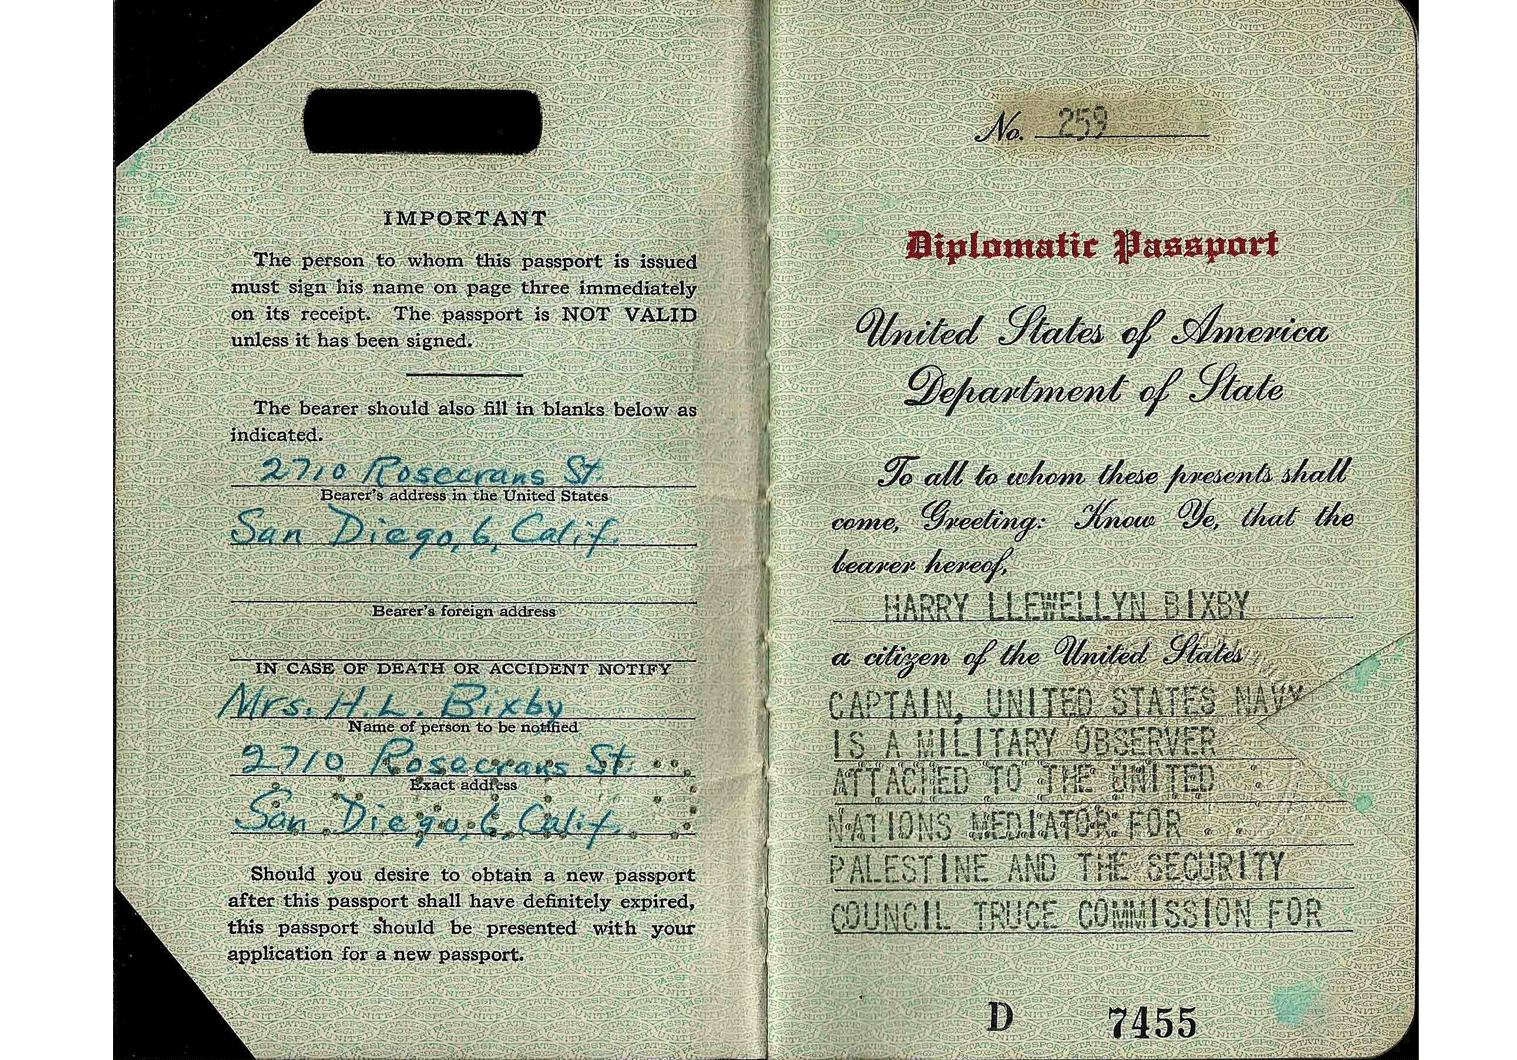 IMPORTANT
The person to whom this passport is issued
must sign his name on page three immediately
on its receipt. The passport is NOT VALID
unless it has been signed.
The bearer should also fill in blanks below as
indicated.
2710 Rosecrans St.
Bearer's address in the United States
San Diego, 6, Calif.
Bearer's foreign address
IN CASE OF DEATH OR ACCIDENT NOTIFY
Mrs. H. L. Bixby
Name of person to be notified
2710 Rosecrans St.
Exact address
San Diego, 6, Calif.
Should you desire to obtain a new passport
after this passport shall have definitely expired,
this passport should be presented with your
application for a new passport.
No. 259
Diplomatic Passport
United States of America
Department of State
To all to whom these presents shall
come, Greeting: Know Ye, that the
bearer hereof,
HARRY LLEWELLYN BIXBY
a citizen of the United States
CAPTAIN, UNITED STATES NAVY
IS A MILITARY OBSERVER
ATTACHED TO THE UNITED
NATIONS MEDIATOR FOR
PALESTINE AND THE SECURITY
COUNCIL TRUCE COMMISSION FOR
D 7455